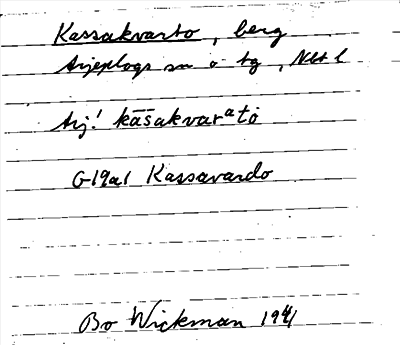 Kassakvarto, berg
Arjeplogs sn o tg, Nbt l
Arj! kāšakvarᵃtō
G19a1 Kassavardo
Bo Wickman 1941